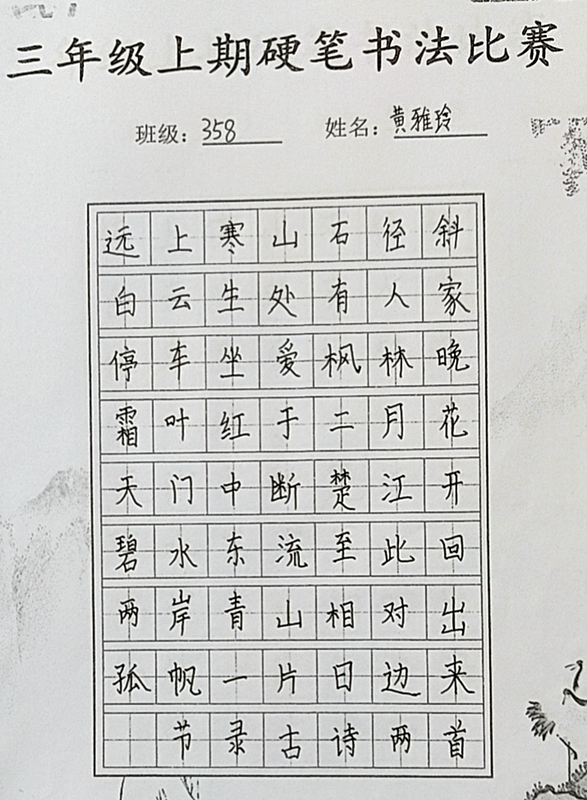 三年级上期硬笔书法比赛
班级：358 姓名：黄雅玲
远上寒山石径斜
白云生处有人家
停车坐爱枫林晚
霜叶红于二月花
天门中断楚江开
碧水东流至此回
两岸青山相对出
孤帆一片日边来
节录古诗两首